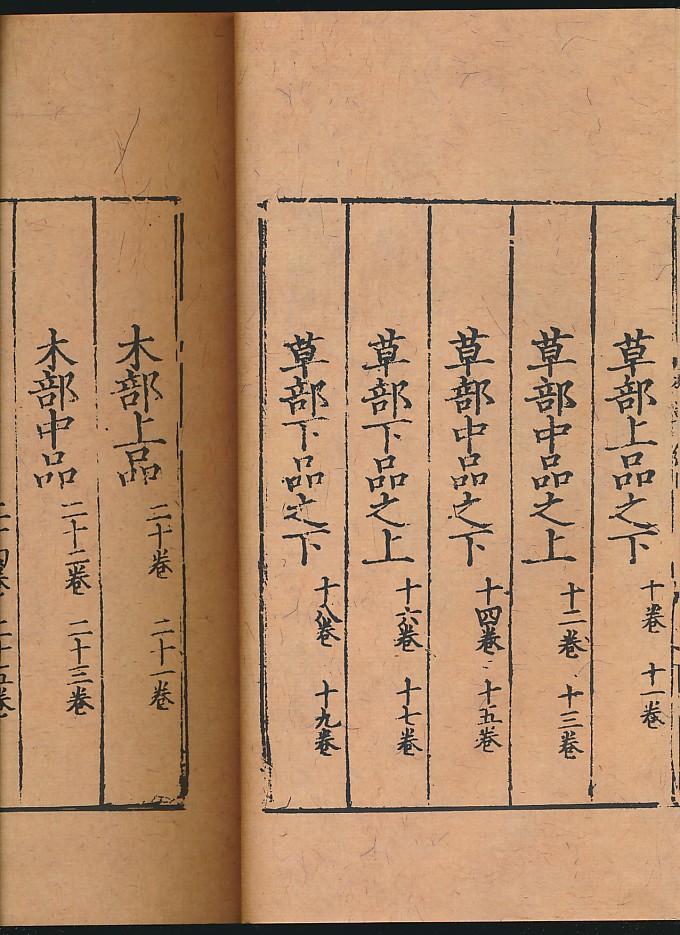 草部上品之下 十卷 十一卷
草部中品之上 十二卷 十三卷
草部中品之下 十四卷 十五卷
草部下品之上 十六卷 十七卷
草部下品之下 十八卷 十九卷
木部上品 二十卷 二十一卷
木部中品 二十二卷 二十三卷
二十四卷 二十五卷